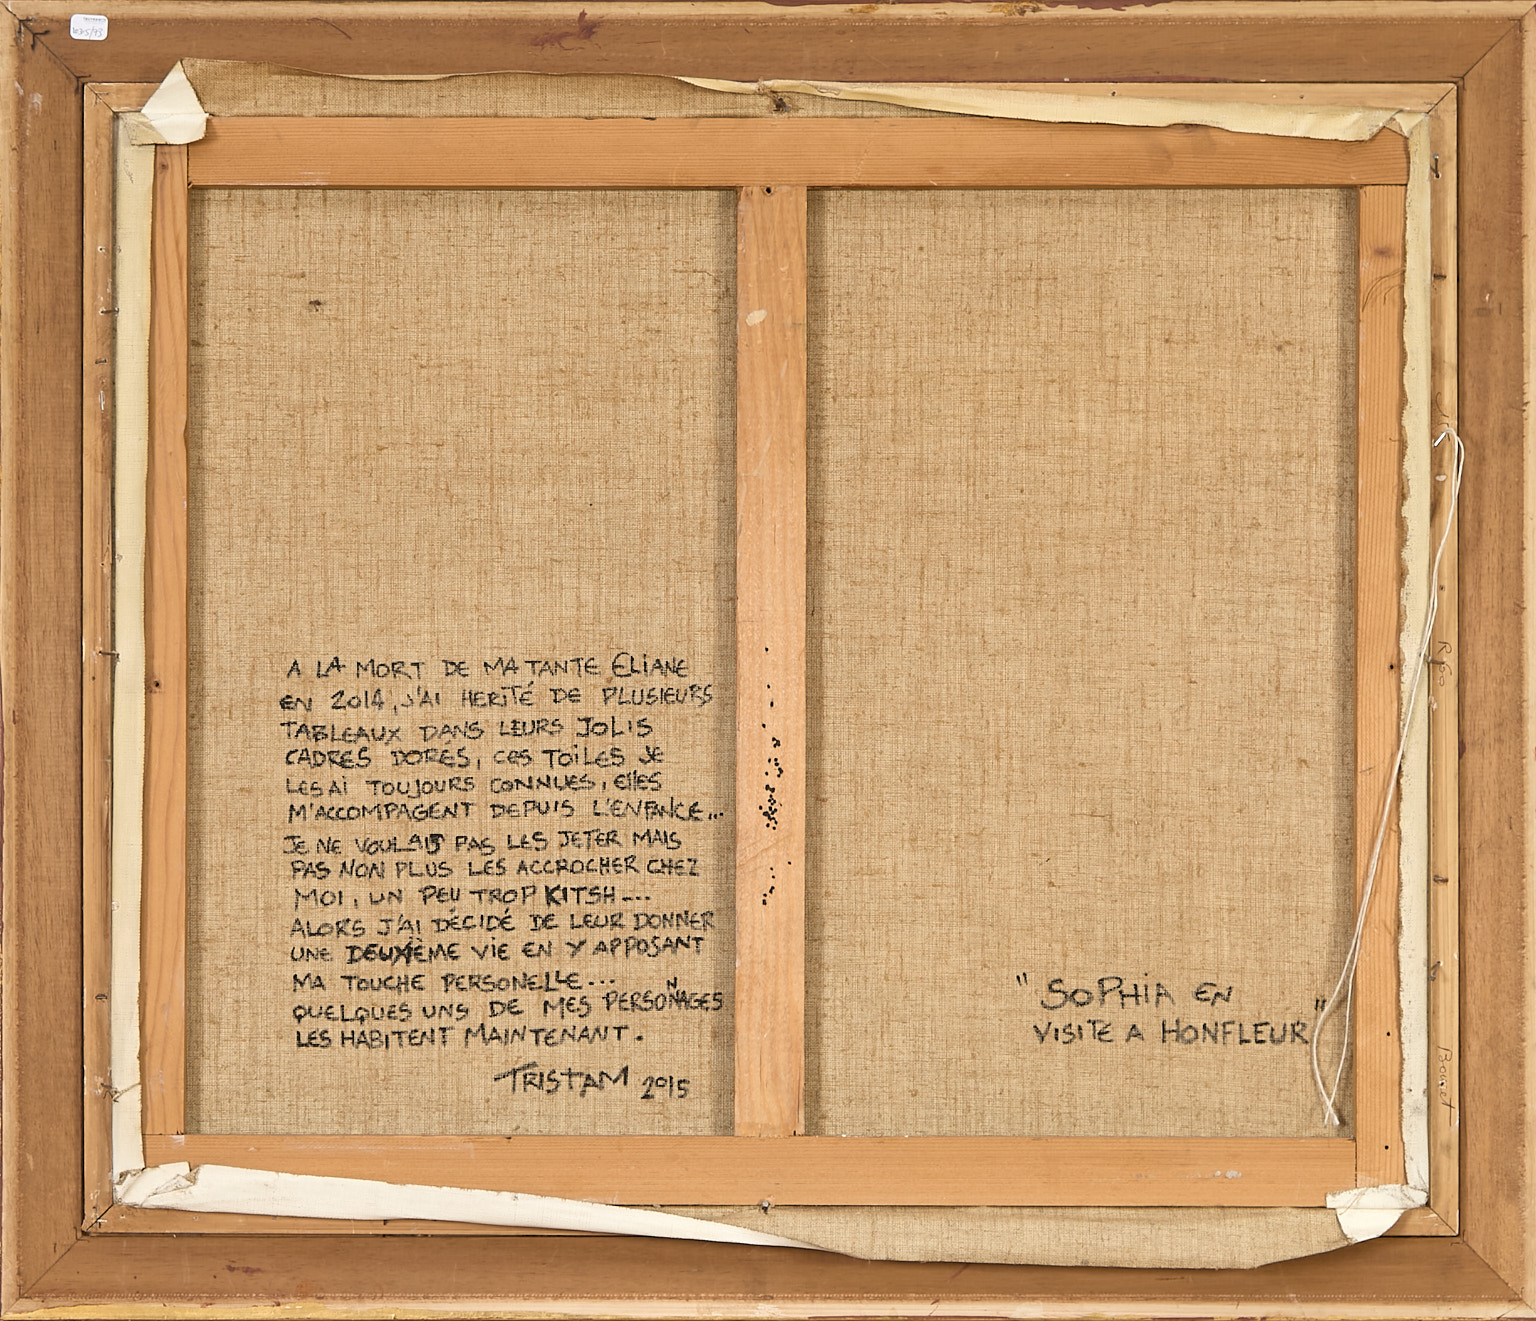 A LA MORT DE MA TANTE ELIANE
EN 2014, J'AI HERITÉ DE PLUSIEURS
TABLEAUX DANS LEURS JOLIS
CADRES DORES, CES TOILES JE
LES AI TOUJOURS CONNUES, ELLES
M'ACCOMPAGENT DEPUIS L'ENFANCE...
JE NE VOULAIS PAS LES JETER MAIS
PAS NON PLUS LES ACCROCHER CHEZ
MOI, UN PEU TROP KITSH...
ALORS J'AI DÉCIDÉ DE LEUR DONNER
UNE DEUXIÈME VIE EN Y APPOSANT
MA TOUCHE PERSONELLE...
QUELQUES UNS DE MES PERSONNAGES
LES HABITENT MAINTENANT.
TRISTAM 2015
"SOPHIA EN
VISITE A HONFLEUR"